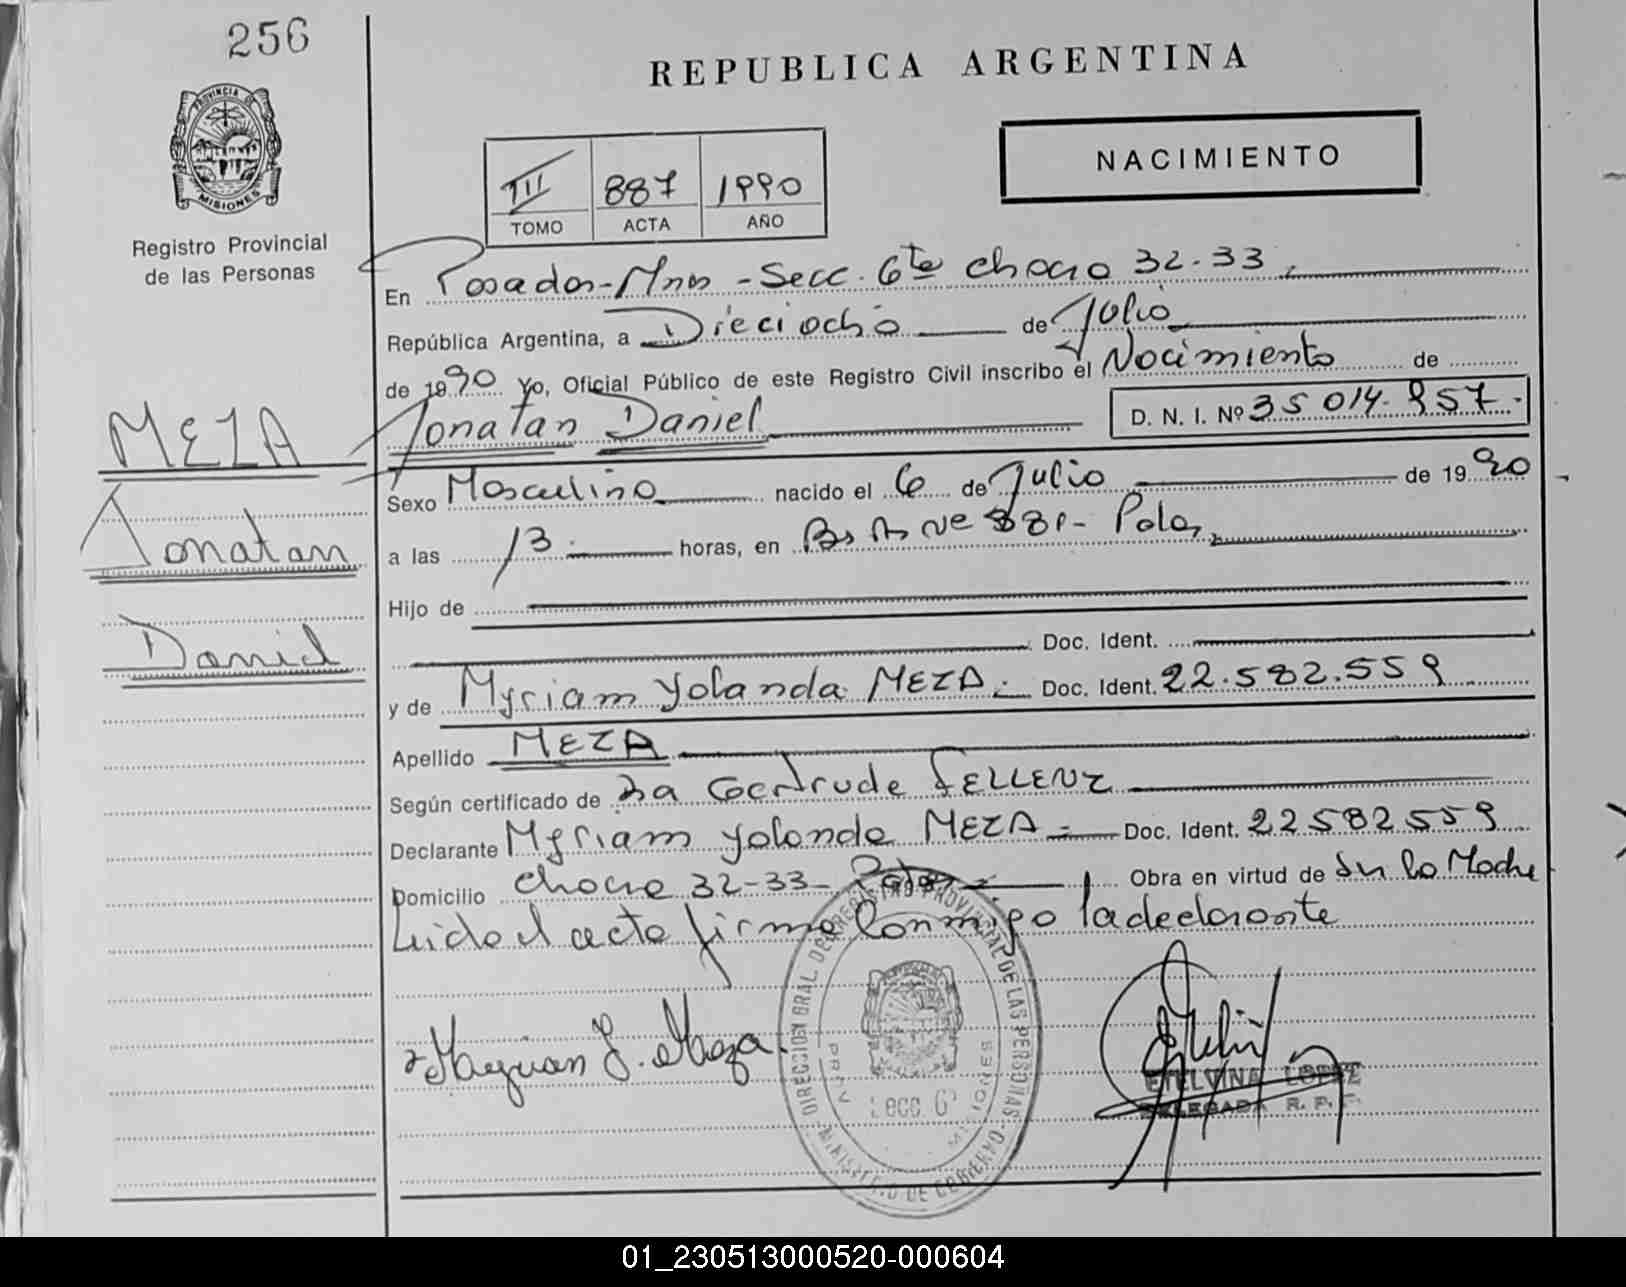 256
REPUBLICA ARGENTINA
PROVINCIA DE
MISIONES
NACIMIENTO
III 887 1990
TOMO ACTA AÑO
Registro Provincial
de las Personas
En Posadas-Mnes - Secc. 6ta chacra 32-33,
República Argentina, a Dieciocho de Julio
de 1990 Yo, Oficial Público de este Registro Civil inscribo el Nacimiento de
Jonatan Daniel D. N. I. Nº 35 014. 957.
MEZA
Jonatan
Daniel
Sexo Masculino nacido el 6 de Julio de 1990
a las 13 horas, en
Hijo de
Doc. Ident.
y de Myriam Yolanda MEZA. Doc. Ident. 22.582.559
Apellido MEZA
Según certificado de Gertrude FELLENZ
Declarante Myriam Yolanda MEZA Doc. Ident. 22582559
Domicilio chacra 32-33 Obra en virtud de Madre
Leida el acta firma Conmigo la declarante
DIRECCION GRAL. DEL REGISTRO PROVINCIAL DE LAS PERSONAS
MINISTERIO DE GOBIERNO
PROV. MISIONES
Secc. 6
ETELVINA LOPEZ
DELEGADA R. P. P.
01_230513000520-000604